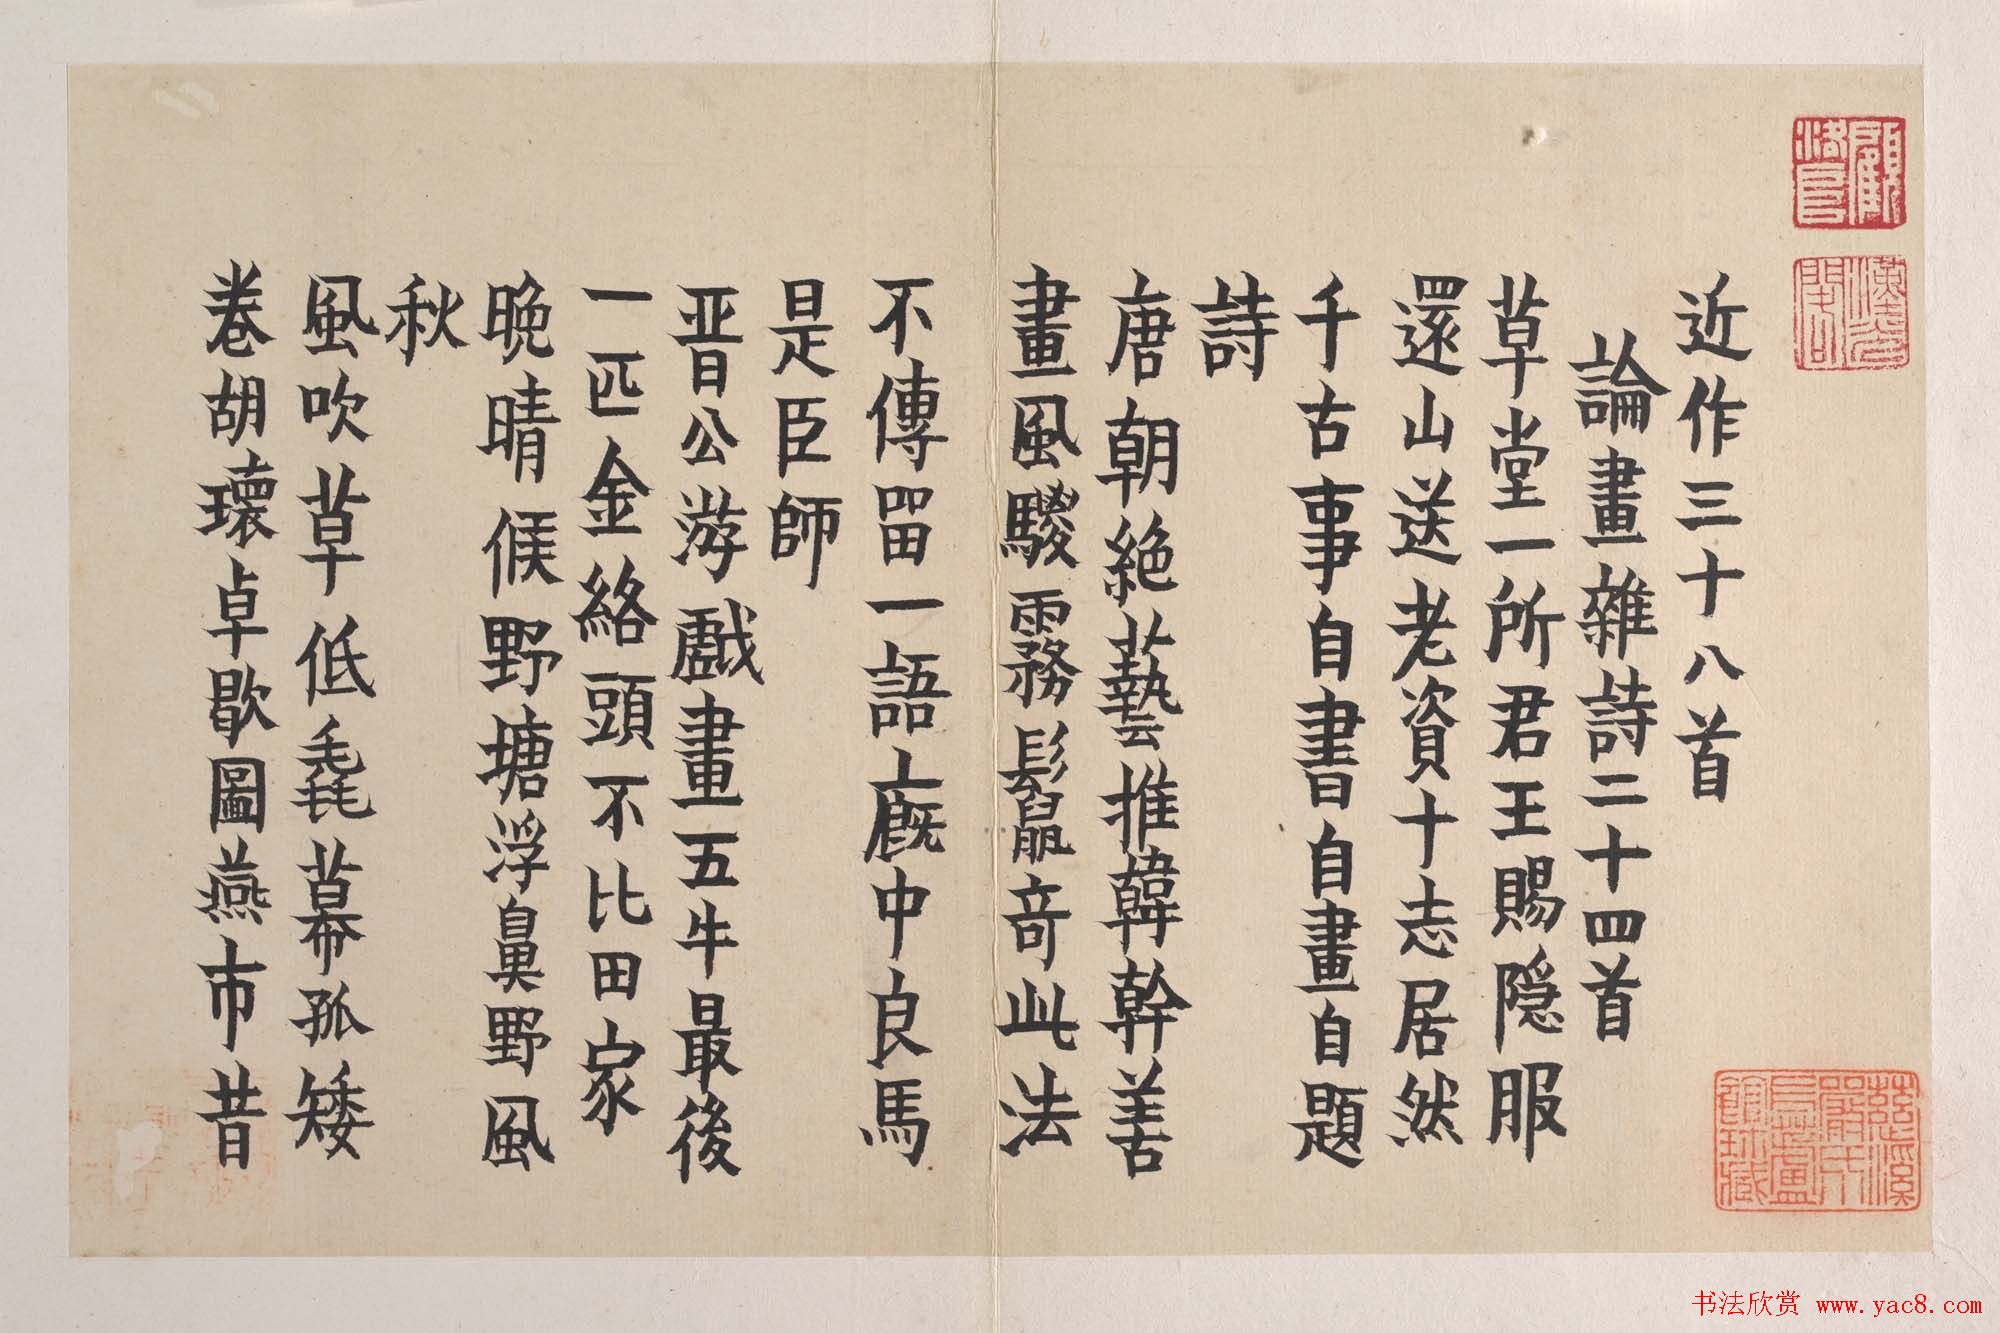 近作三十八首
論畫雜詩二十四首
草堂一所君王賜隐服
還山送老資十志居然
千古事自書自畫自題
詩
唐朝絶藝推韓幹善
畫風騣霧鬛奇此法
不傳留一語廄中良馬
是臣師
晋公游戲畫五牛最後
一匹金絡頭不比田家
晚晴候野塘浮鼻野風
秋
風吹草低毳幕孤矮
卷胡瓌卓歇圖燕市昔
書法欣赏 www.yac8.com